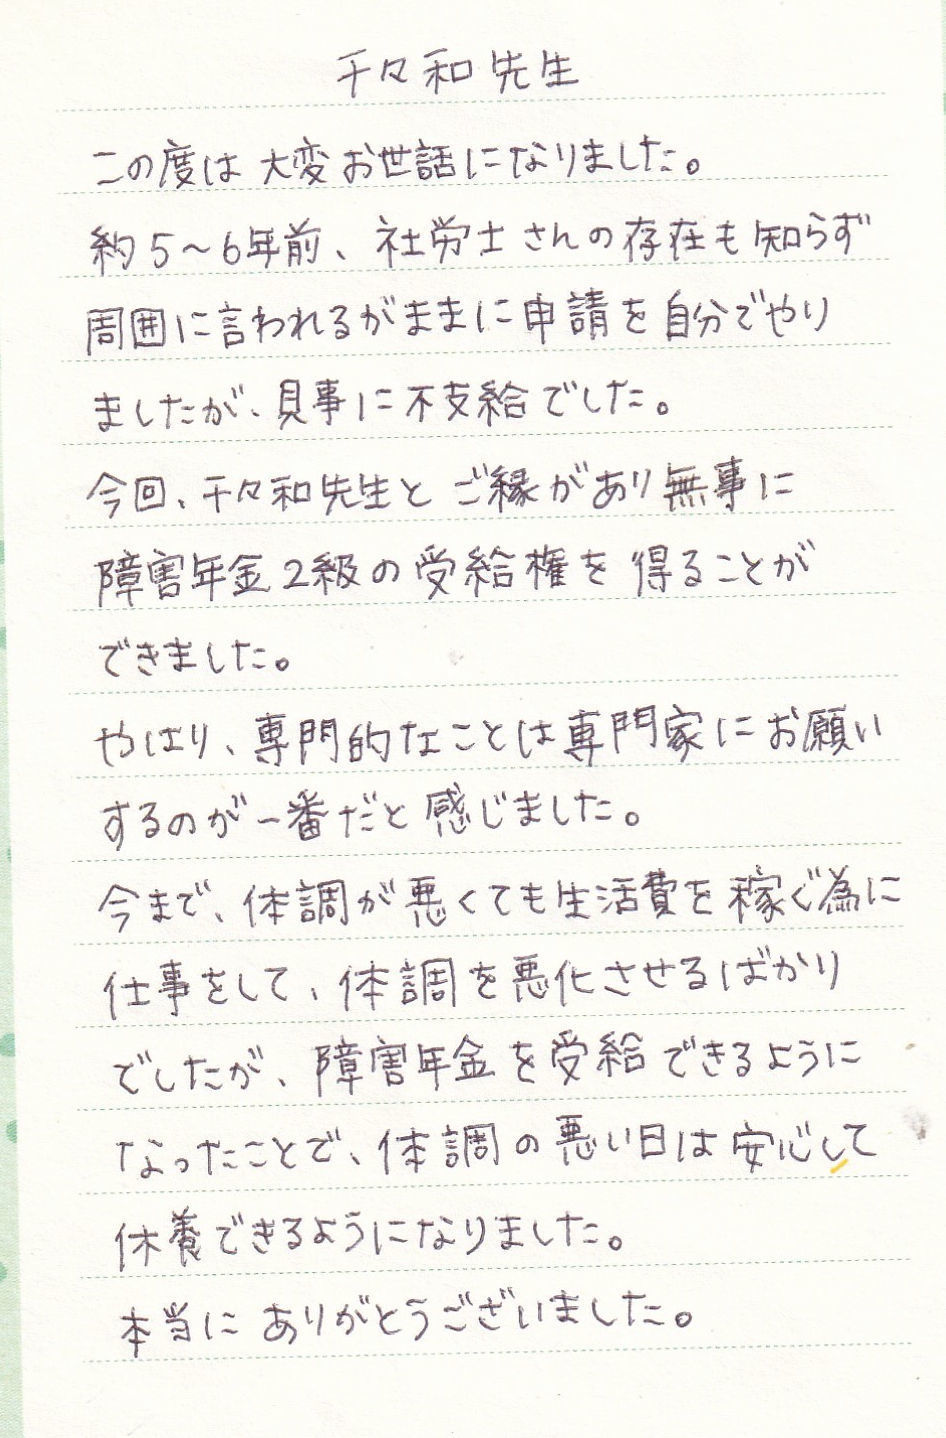 千々和先生
この度は大変お世話になりました。
約5～6年前、社労士さんの存在も知らず
周囲に言われるがままに申請を自分でやり
ましたが、見事に不支給でした。
今回、千々和先生とご縁があり無事に
障害年金2級の受給権を得ることが
できました。
やはり、専門的なことは専門家にお願い
するのが一番だと感じました。
今まで、体調が悪くても生活費を稼ぐ為に
仕事をして、体調を悪化させるばかり
でしたが、障害年金を受給できるように
なったことで、体調の悪い日は安心して
休養できるようになりました。
本当にありがとうございました。